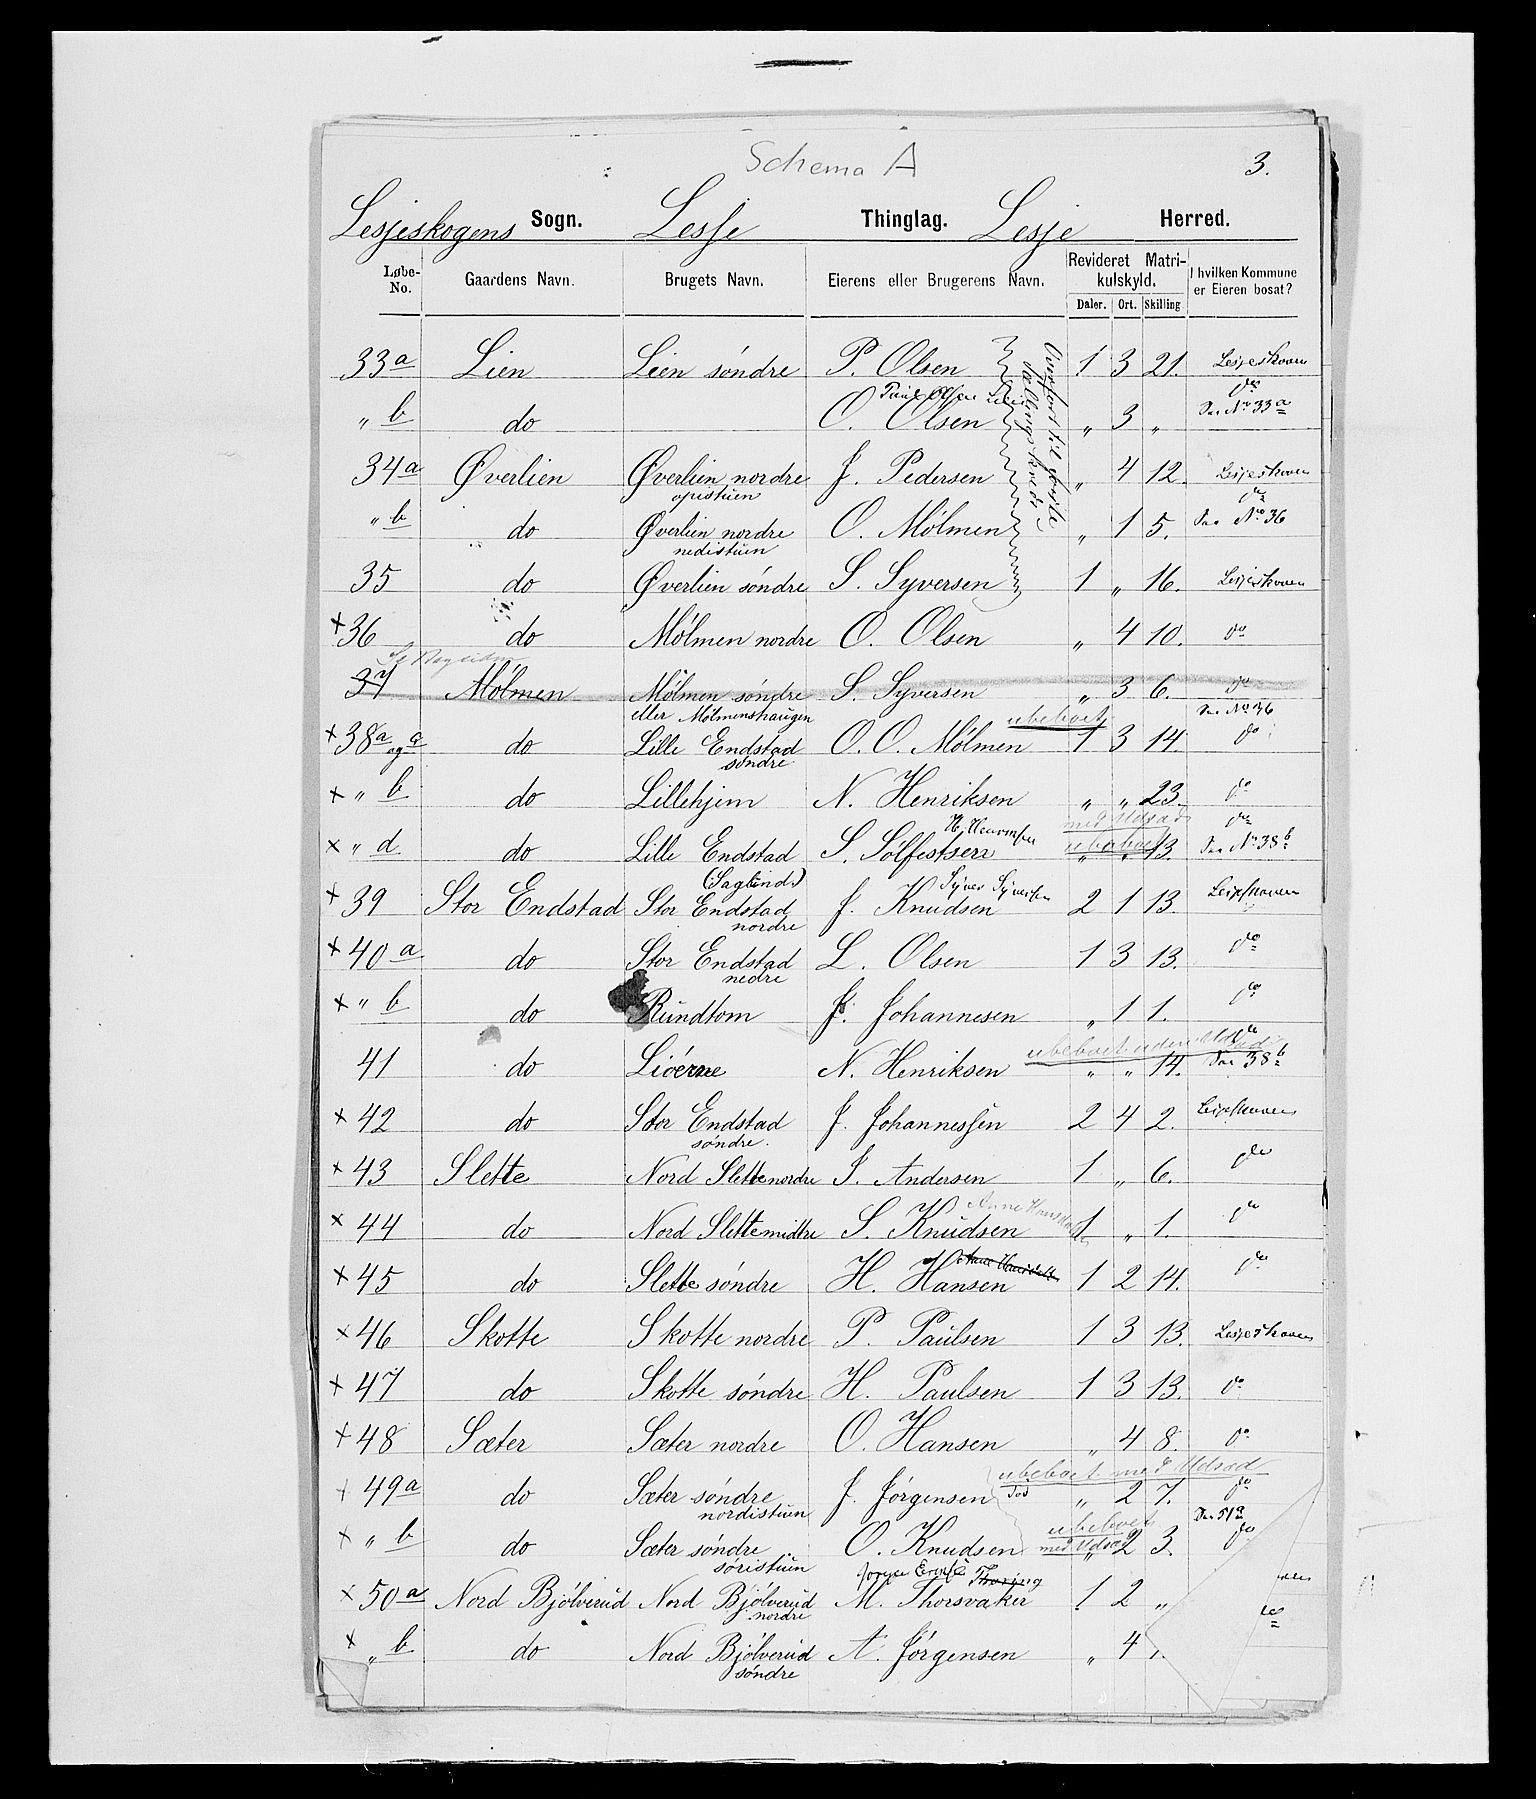 Schema A
3.
Lesjeskogens Sogn. Lesje Thinglag. Lesje Herred.
Løbe-No. Gaardens Navn. Brugets Navn. Eierens eller Brugerens Navn. Revideret Matrikulskyld. I hvilken Kommune er Eieren bosat?
Daler. Ort. Skilling
33a Lien Lien söndre P. Olsen 1 3 21. Lesjeskoven
" b do O. Olsen " 3 " do Se No 33a
34a Øverlien Øverlien nordre opistuen J. Pedersen " 4 12. Lesjeskoven
" b do Øverlien nordre nedistuen O. Mölmen " 1 5. do No 36
35 do Øverlien söndre S. Syversen 1 " 16. Lesjeskoven
× 36 do Mölmen nordre O. Olsen " 4 10. do
37 Mölmen Mölmen söndre eller Mölmenshaugen S. Syversen " 3 6. do
ubeboet No 36
× 38a og c do Lille Endstad söndre O. O. Mölmen 1 3 14. do
× " b do Lillehjem N. Henriksen " " 23. do
med Udsæd
× " d do Lille Endstad (Saglund) S. Solfestsen ubeboet " " 13. do No 38b
× 39 Stor Endstad Stor Endstad nordre Syver Syversen J. Knudsen 2 1 13. Lesjeskoven
× 40a do Stor Endstad nedre L. Olsen 1 3 13. do
× " b do Rundtom J. Johannesen " 1 1. do
ubeboet uden Udsæd
41 do Liöerne N. Henriksen " " 14. 38b
× 42 do Stor Endstad söndre. J. Johannesen 2 4 2. Lesjeskoven
× 43 Slette Nord Slette nordre I. Andersen 1 " 6. do
× 44 do Nord Slette midtre S. Knudsen Anne 1 " 1. do
× 45 do Slette söndre H. Hansen 1 2 14. do
× 46 Skotte Skotte nordre P. Paulsen 1 3 13. Lesjeskoven
× 47 do Skotte söndre H. Paulsen 1 3 13. do
× 48 Sæter Sæter nordre O. Hansen " 4 8. do
ubeboet med Udsæd
× 49a do Sæter söndre nordistuen J. Jörgensen " 2 7. do
ubeboet 51a
× " b do Sæter söndre söristuen O. Knudsen med Udsæd " 2 3. do
× 50a Nord Bjölverud Nord Bjölverud nordre M. Thorsvaker 1 2 "
× " b do Nord Bjölverud söndre A. Jörgensen " 4 do